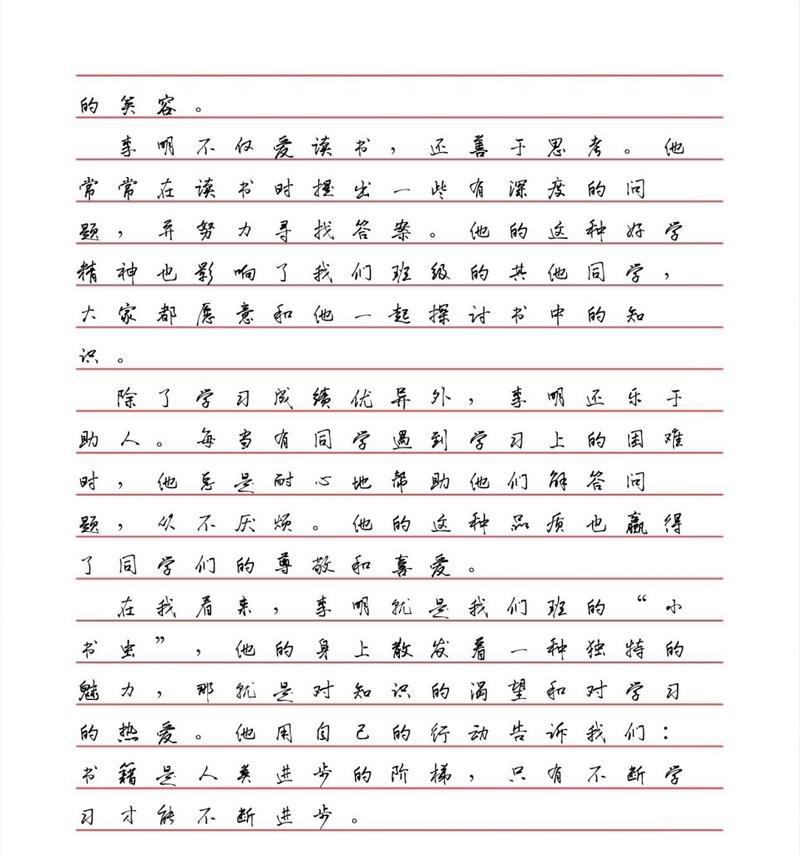 的笑容。
李明不仅爱读书，还善于思考。他
常常在读书时提出一些有深度的问
题，并努力寻找答案。他的这种好学
精神也影响了我们班级的其他同学，
大家都愿意和他一起探讨书中的知
识。
除了学习成绩优异外，李明还乐于
助人。每当有同学遇到学习上的困难
时，他总是耐心地帮助他们解答问
题，从不厌烦。他的这种品质也赢得
了同学们的尊敬和喜爱。
在我看来，李明就是我们班的“小
书虫”，他的身上散发着一种独特的
魅力，那就是对知识的渴望和对学习
的热爱。他用自己的行动告诉我们：
书籍是人类进步的阶梯，只有不断学
习才能不断进步。